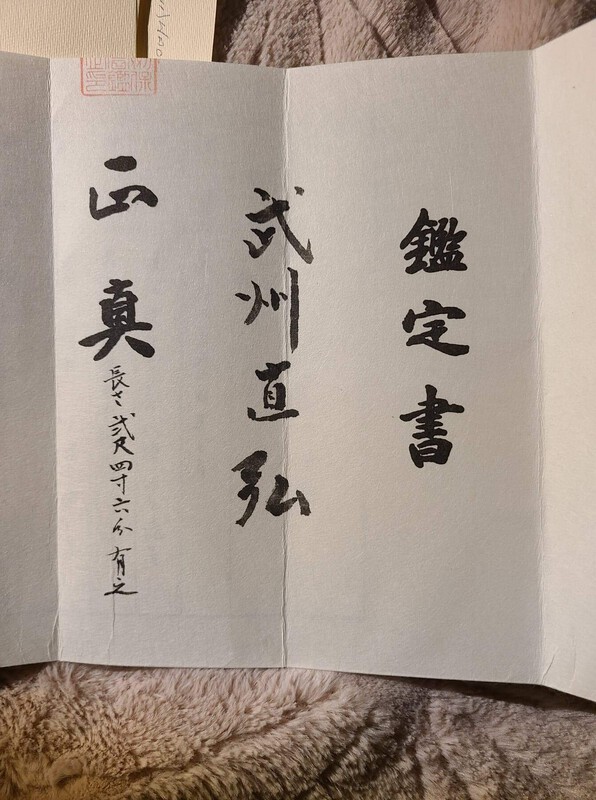 鑑定書
武州直弘
正真
長さ弐尺四寸六分有之